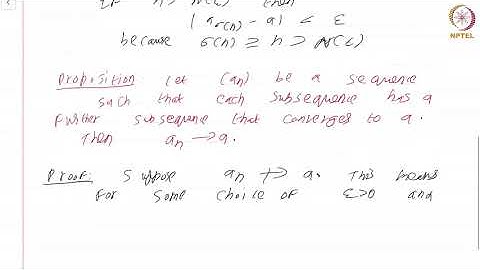 If n > N(ε) then
|a_σ(n) - a| < ε
because σ(n) ≥ n > N(ε)
NPTEL
Proposition Let (an) be a sequence
such that each subsequence has a
further subsequence that converges to a.
Then an → a.
Proof: Suppose an ↛ a. This means
for some choice of ε>0 and